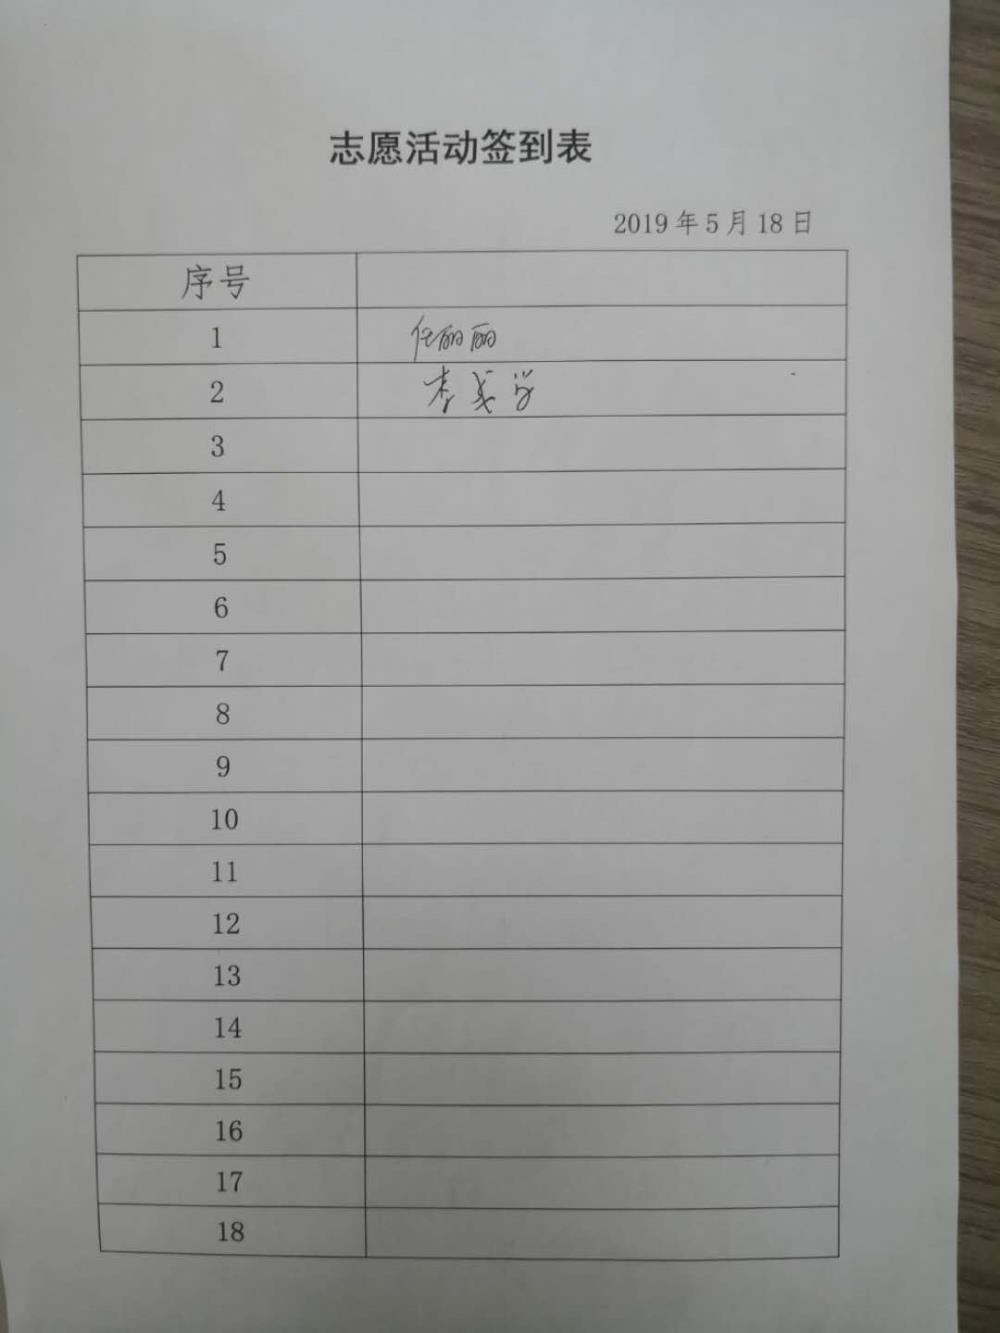 志愿活动签到表
2019年5月18日
序号
1 任丽丽
2 李
3
4
5
6
7
8
9
10
11
12
13
14
15
16
17
18